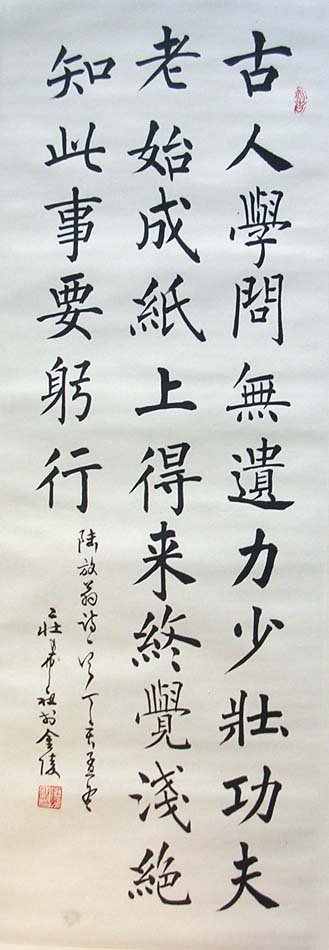 古人學問無遺力少壯功夫
老始成紙上得来終覺淺絕
知此事要躬行
陸放翁詩一首丁亥
金陵